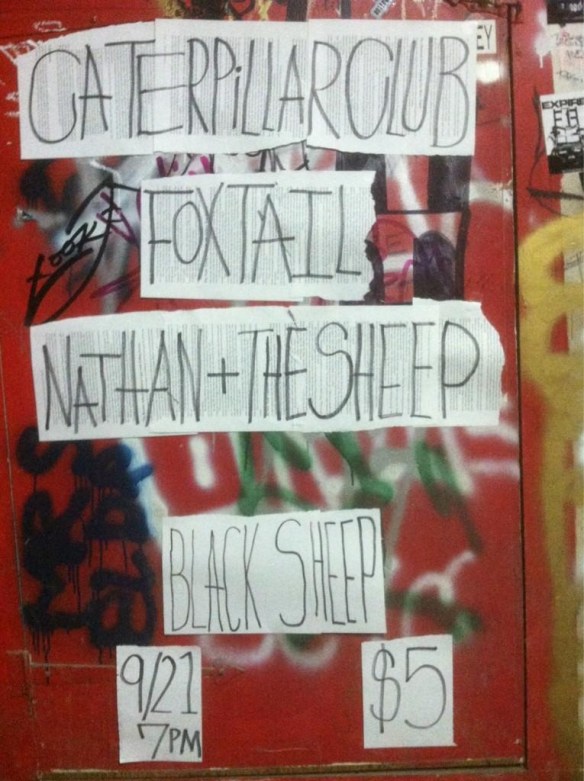 CATERPiLLAR CLUB
FOXTAIL
NATHAN + THÈ SHEEP
BLACK SHEEP
9/21
7PM
$5
EY
EXPIRE